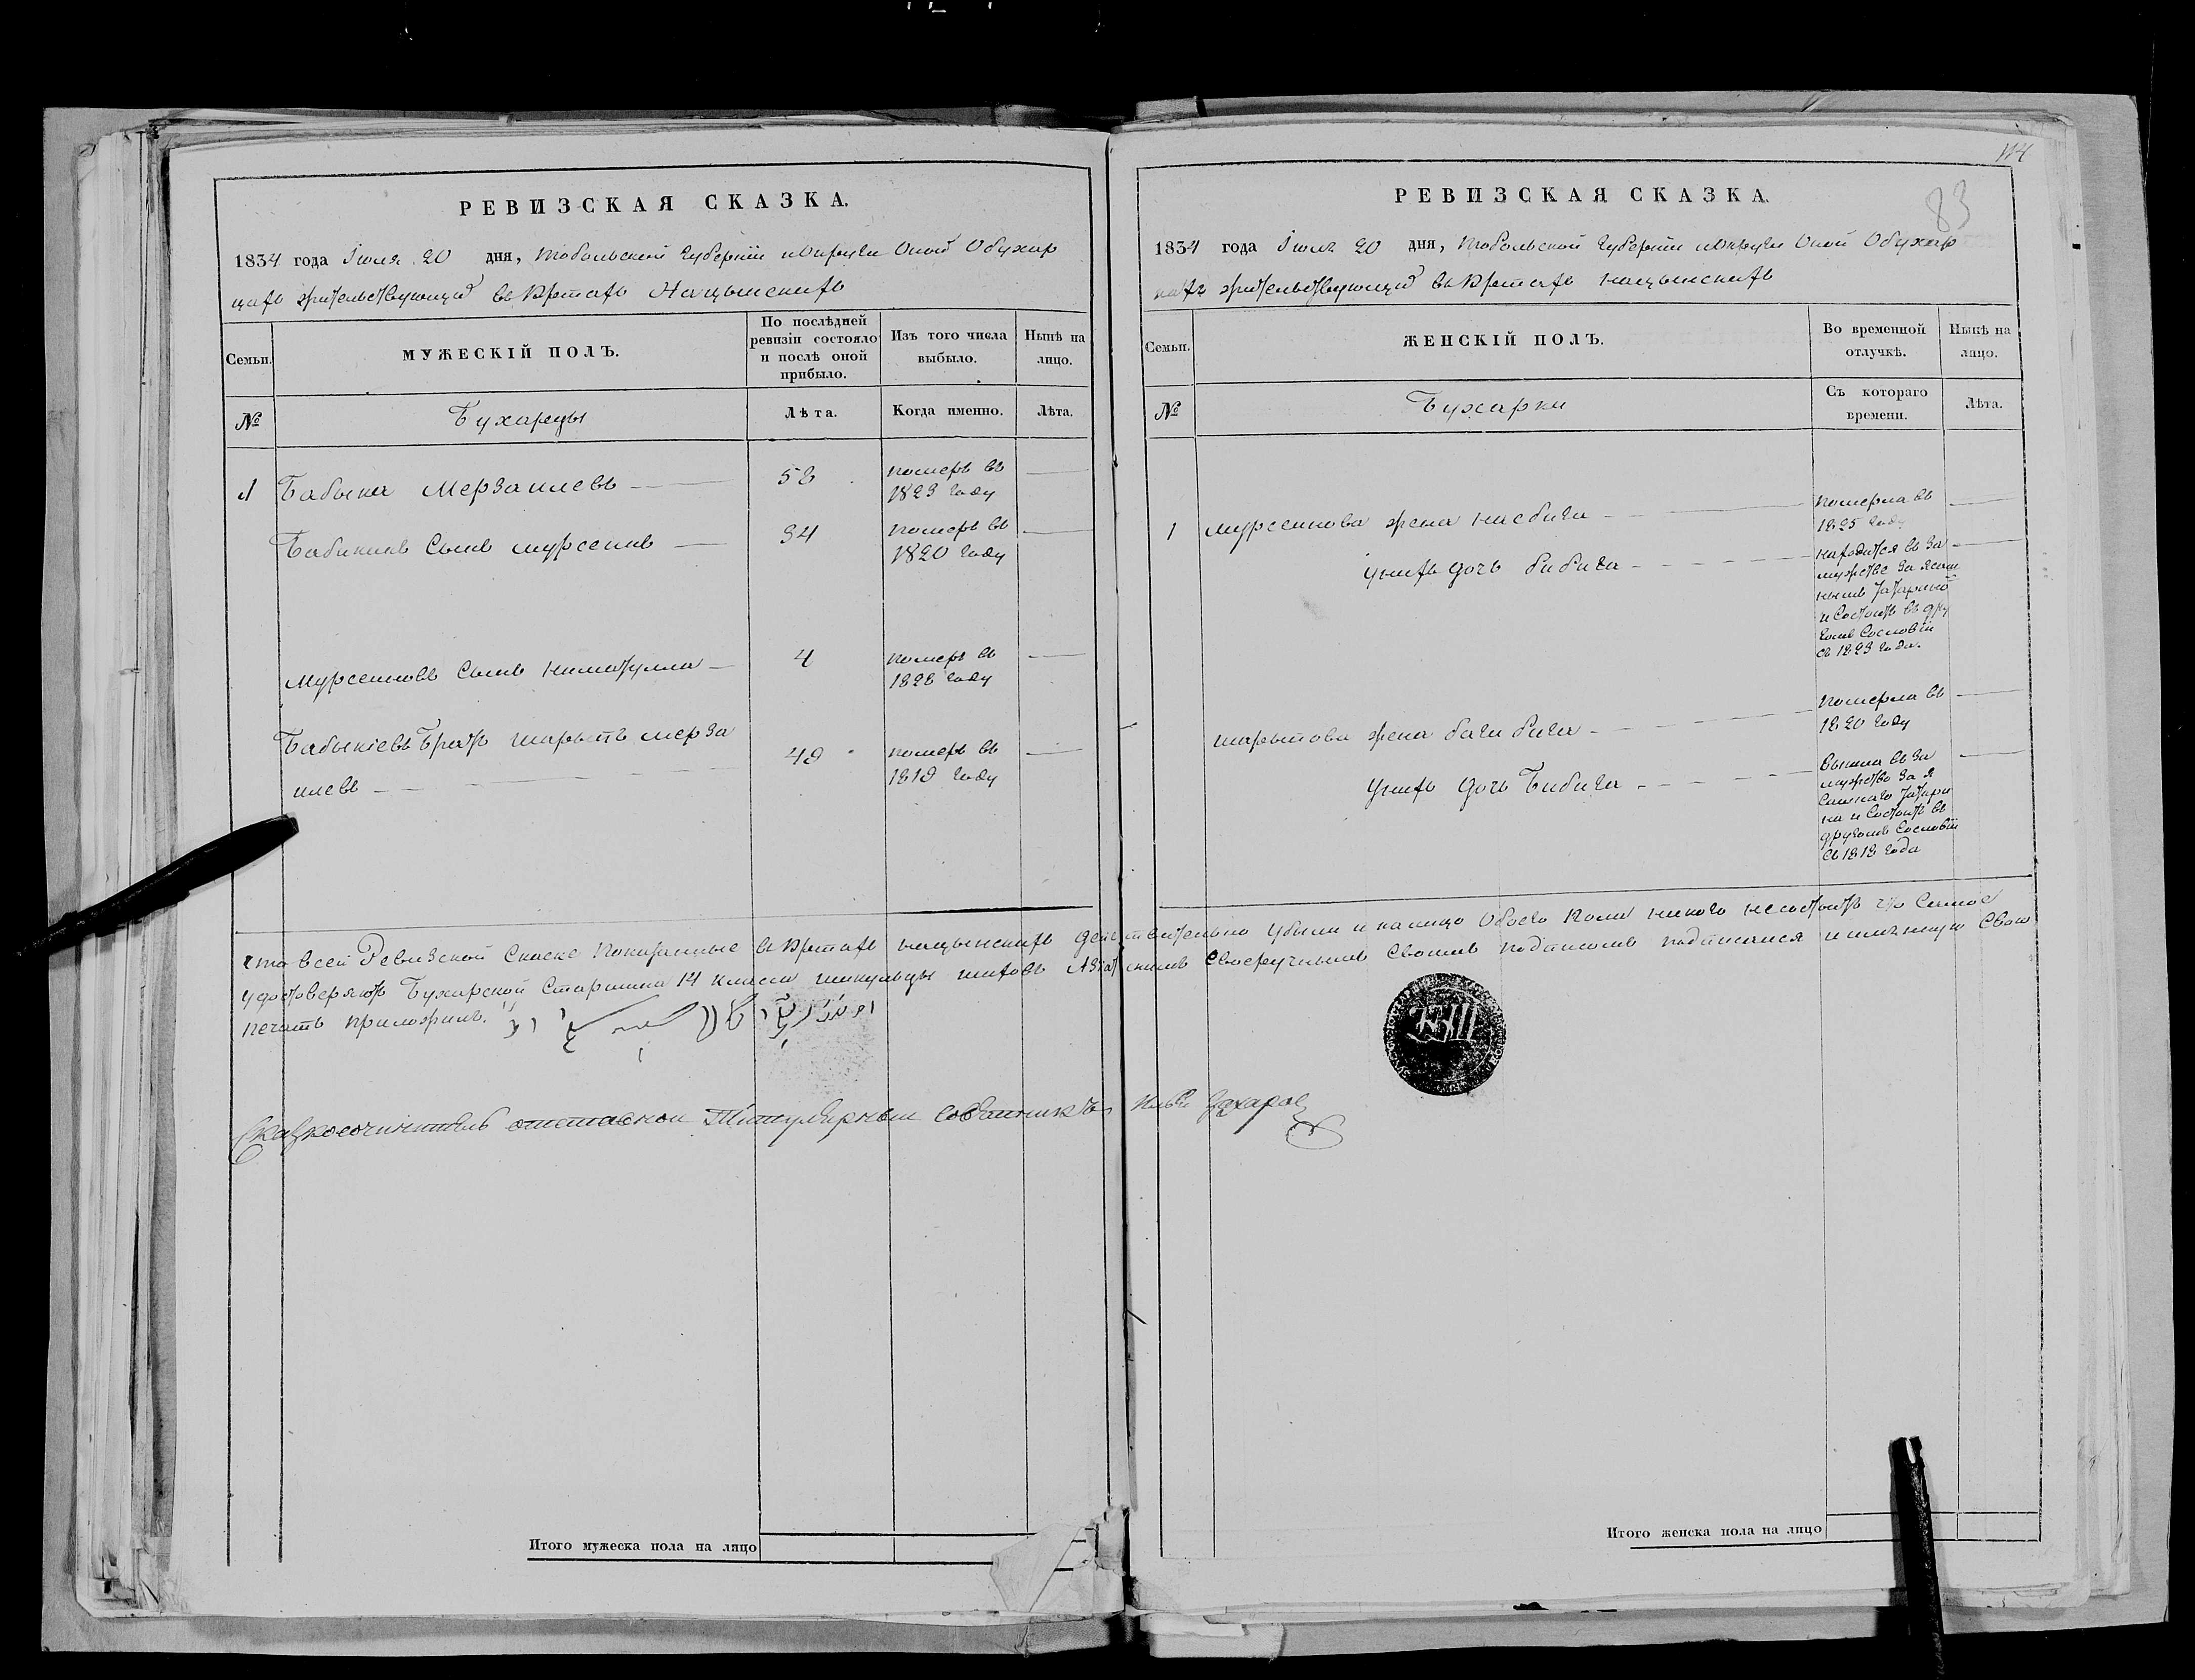 РЕВИЗСКАЯ СКАЗКА.
1834 года Іюля 20 дня, Тобольской Губерніи иОкруги Оной Обухар
цахъ жительствующихъ въ Юртахъ Нацынскихъ
Семьи.
МУЖЕСКІЙ ПОЛЪ.
По послѣдней
ревизіи состояло
и послѣ оной
прибыло.
Изъ того числа
выбыло.
Нынѣ на
лицо.
№
Бухарцы
Лѣта.
Когда именно.
Лѣта.
1 Бабыка Мерзалиевъ 58 померъ въ
1823 году
Бабикинъ Сынъ мурсеинъ 34 померъ въ
1820 году
мурсеиновъ Сынъ ниматулла 4 померъ въ
1828 году
Бабыкіевъ Братъ шарыпъ мерза
илевъ 49 померъ въ
1819 году
114
83
РЕВИЗСКАЯ СКАЗКА.
1834 года Іюля 20 дня, Тобольской Губерніи иОкруги Оной Обухар
цахъ жительствующихъ въ Юртахъ нацынскихъ
Семьи.
ЖЕНСКІЙ ПОЛЪ.
Во временной
отлучкѣ.
Нынѣ на
лицо.
№
Бухарки
Съ котораго
времени.
Лѣта.
1 мурсеинова жена насбига померла въ
1825 году
Унихъ дочь бибига находится въ за
мужстве за ясаш
нымъ татариномъ
и Состоитъ въ дру
гомъ Сословіи
съ 1823 года.
шарыпова жена баги бига померла въ
1820 году
Унихъ дочь Бибига вышла въ за
мужство за я
сашнаго татари
на и Состоитъ въ
другомъ Сословіи
съ 1818 года
что всеи Ревизской Скаске Показанные въ Юртахъ нацынскихъ действительно убыли и на лицо Обоего пола никого несостоитъ что Самое
удостоверяютъ Бухарской Старшина 14 класса шихъ Азіатскимъ Своеручнымъ Своимъ подписомъ подписался и имянную Свою
печать приложилъ.
Сказкосочинитель отставной Титулярный совѣтникъ Захаров
Итого мужеска пола на лицо
Итого женска пола на лицо